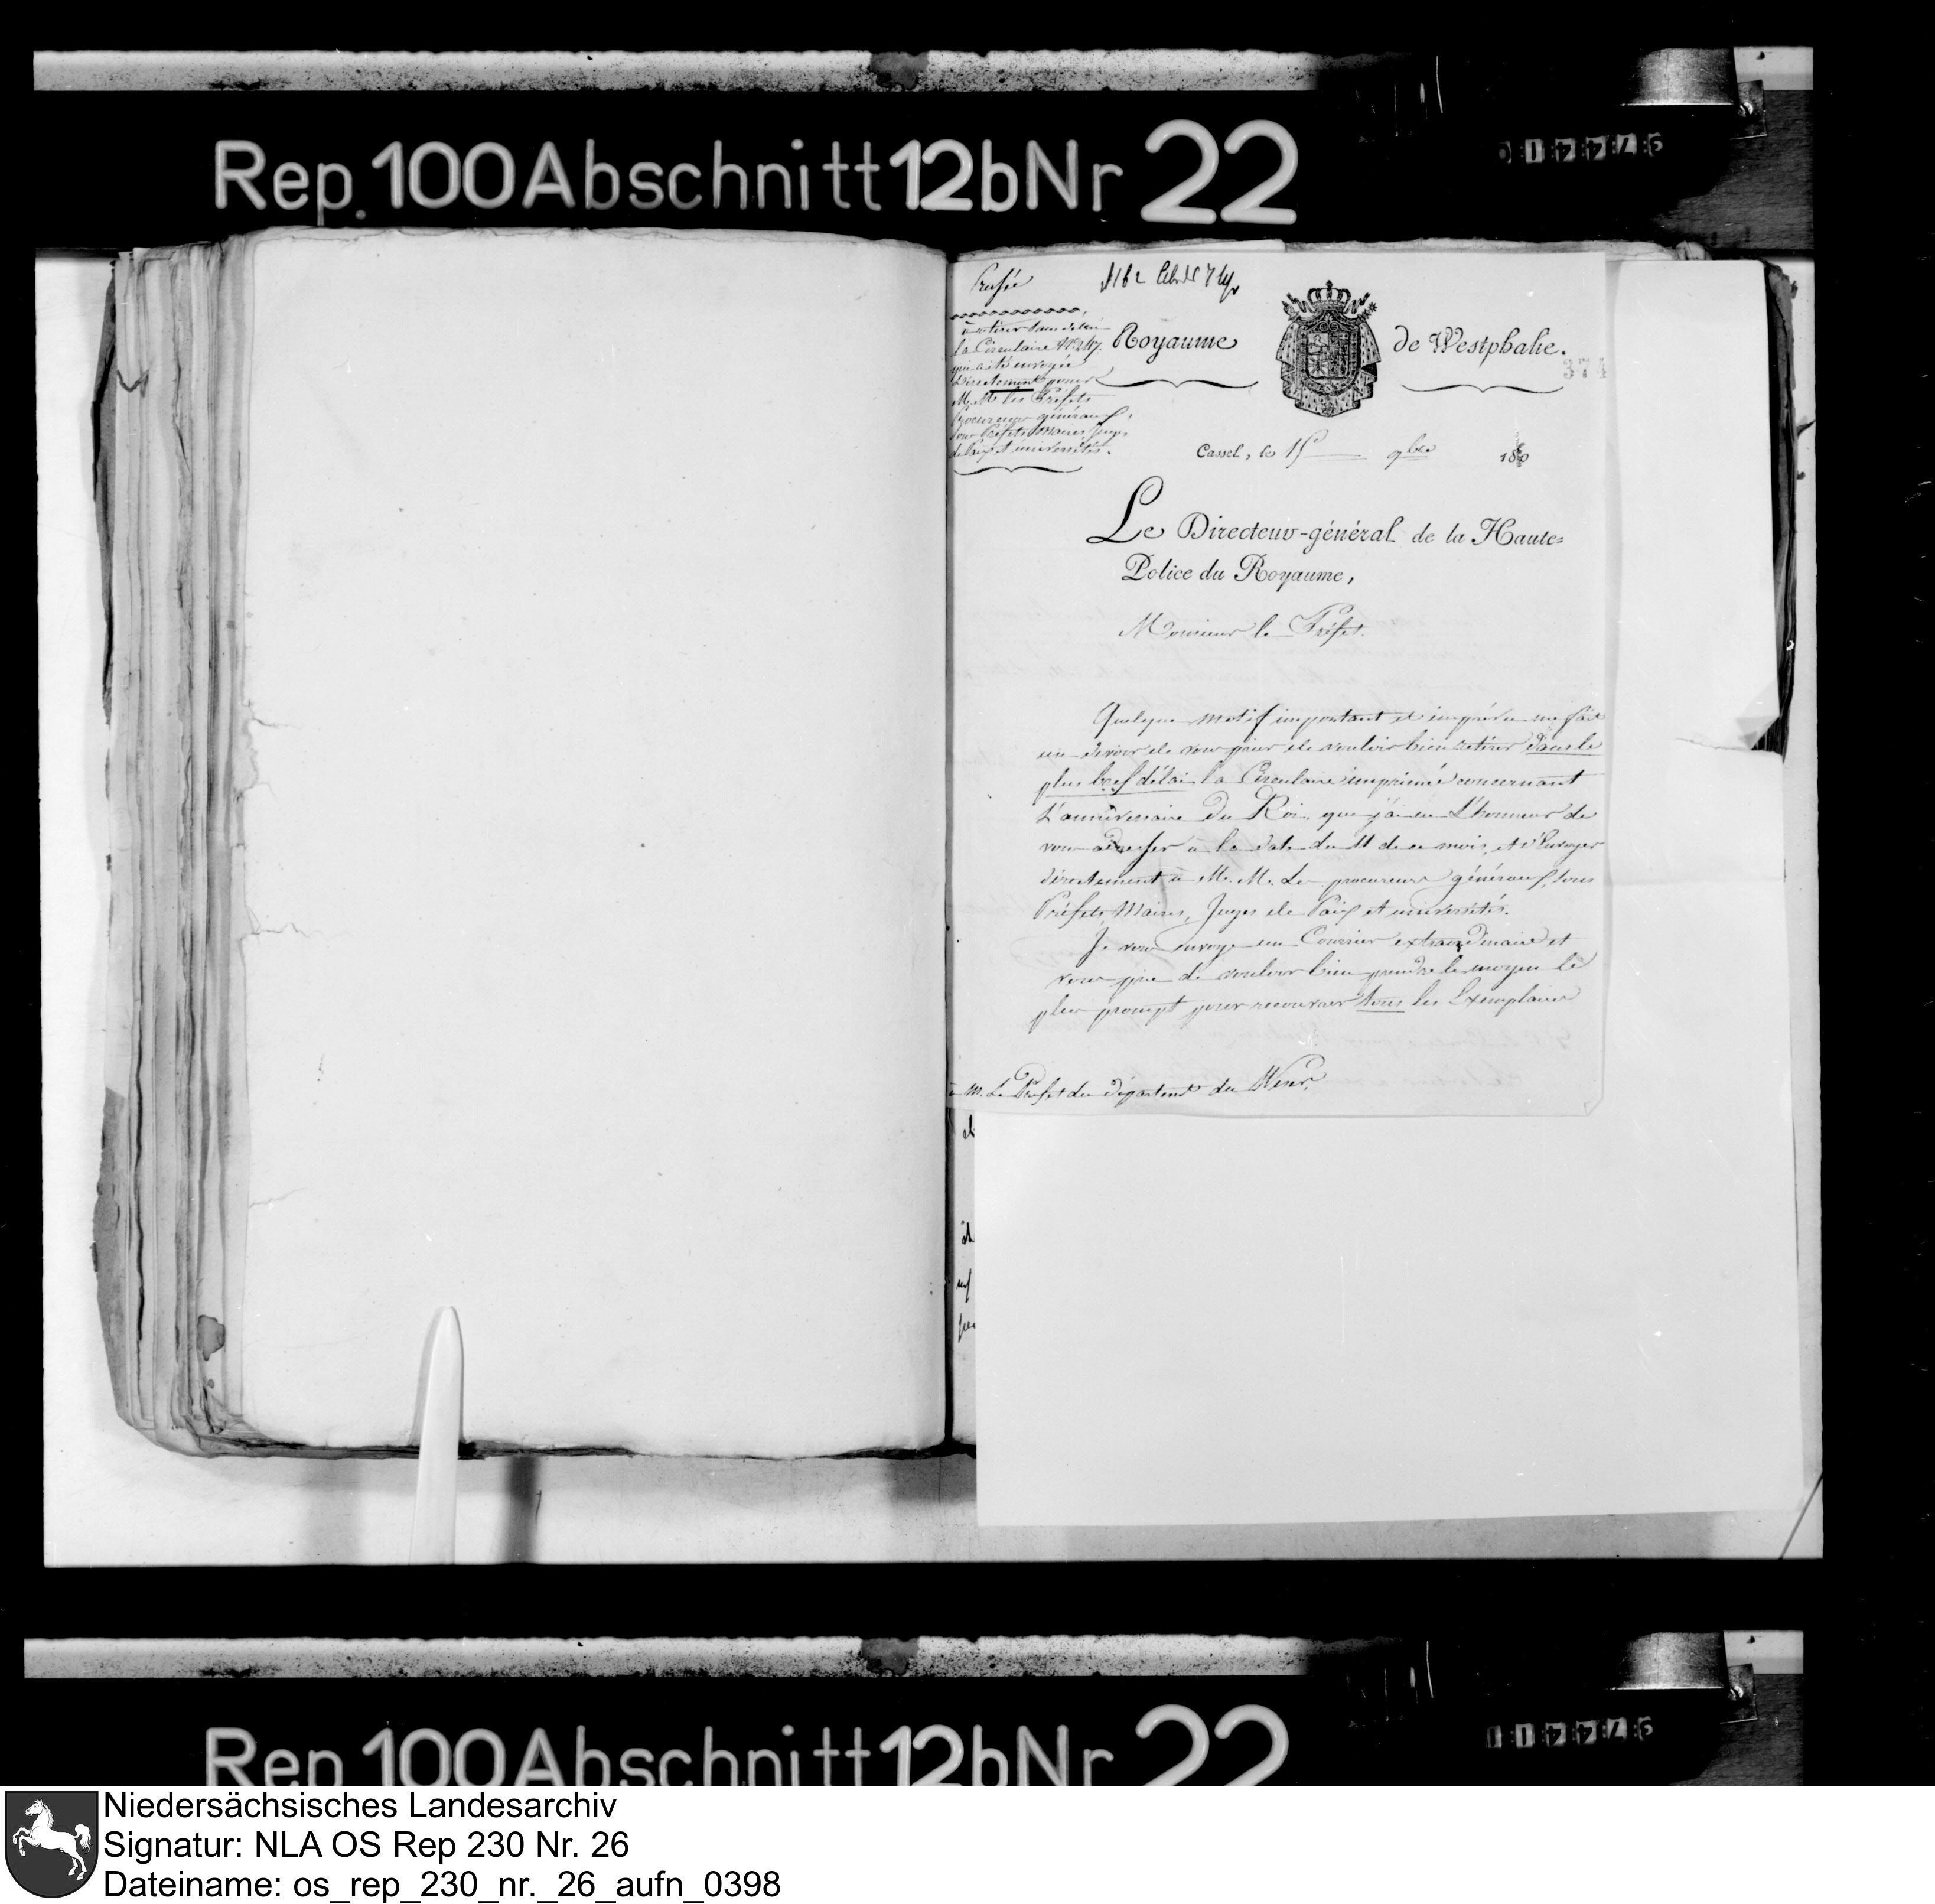 Rep. 100 Abschnitt 12b Nr 22
Royaume de Westphalie.
374
à retirer sans délai
la Circulaire
qui a été envoyée
directement pour
M. M. les Préfets
Procureurs généraux,
sous Préfets Maires Juges
de Paix et universités.
Cassel, le 15 9bre 180
Le Directeur-général de la Haute-
Police du Royaume,
Monsieur le Préfet.
Quelque motif important et imprévu me fait
un devoir de vous prier de vouloir bien retirer dans le
plus bref délai la Circulaire imprimée concernant
l'anniversaire du Roi que j'ai eu l'honneur de
vous adresser à la date du 11 de ce mois, et d'Envoyer
directement à M. M. Le procureurs généraux, sous
Préfets, Maires, Juges de Paix et universités.
Je vous envoye un Courrier extraordinaire et
vous prie de vouloir bien prendre le moyen le
plus prompt pour recouvrer tous les Exemplaires
à M. Le Préfet du départemt du Weser.
Rep 100 Abschnitt 12b Nr 22
Niedersächsisches Landesarchiv
Signatur: NLA OS Rep 230 Nr. 26
Dateiname: os_rep_230_nr._26_aufn_0398